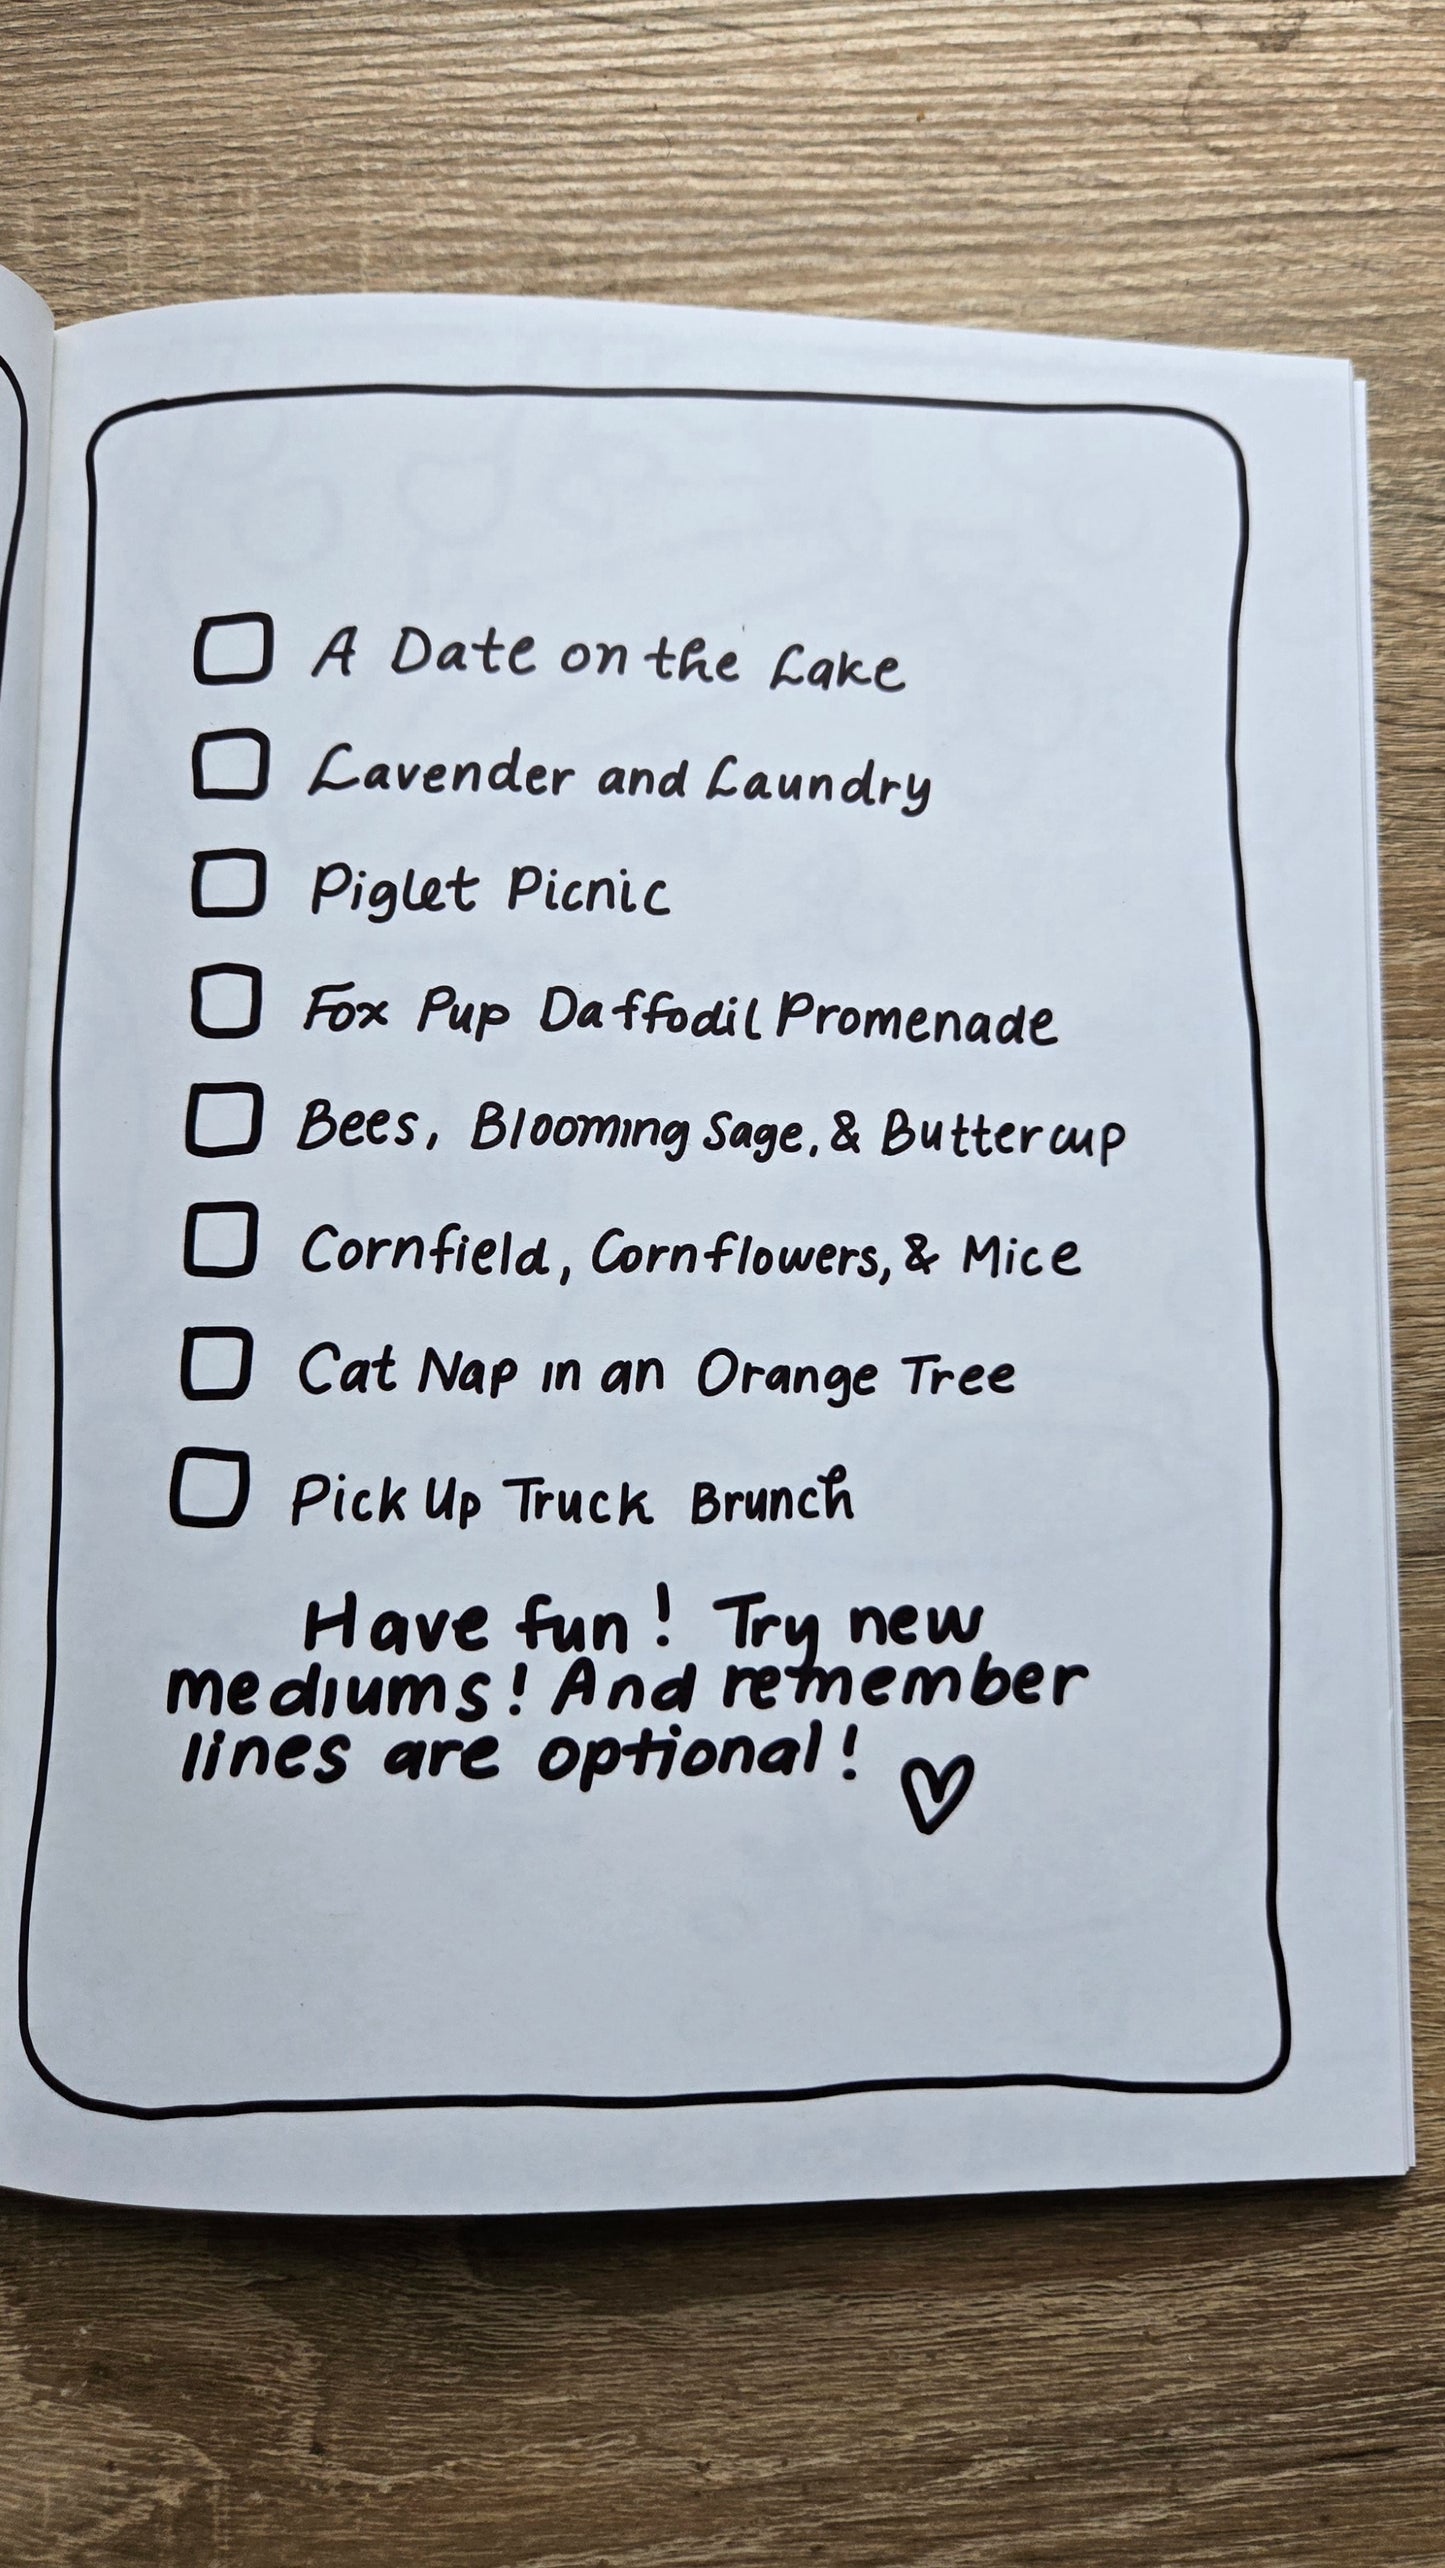 A Date on the Lake
Lavender and Laundry
Piglet Picnic
Fox Pup Daffodil Promenade
Bees, Blooming Sage, & Buttercup
Cornfield, Cornflowers, & Mice
Cat Nap in an Orange Tree
Pick Up Truck Brunch
Have fun! Try new
mediums! And remember
lines are optional!